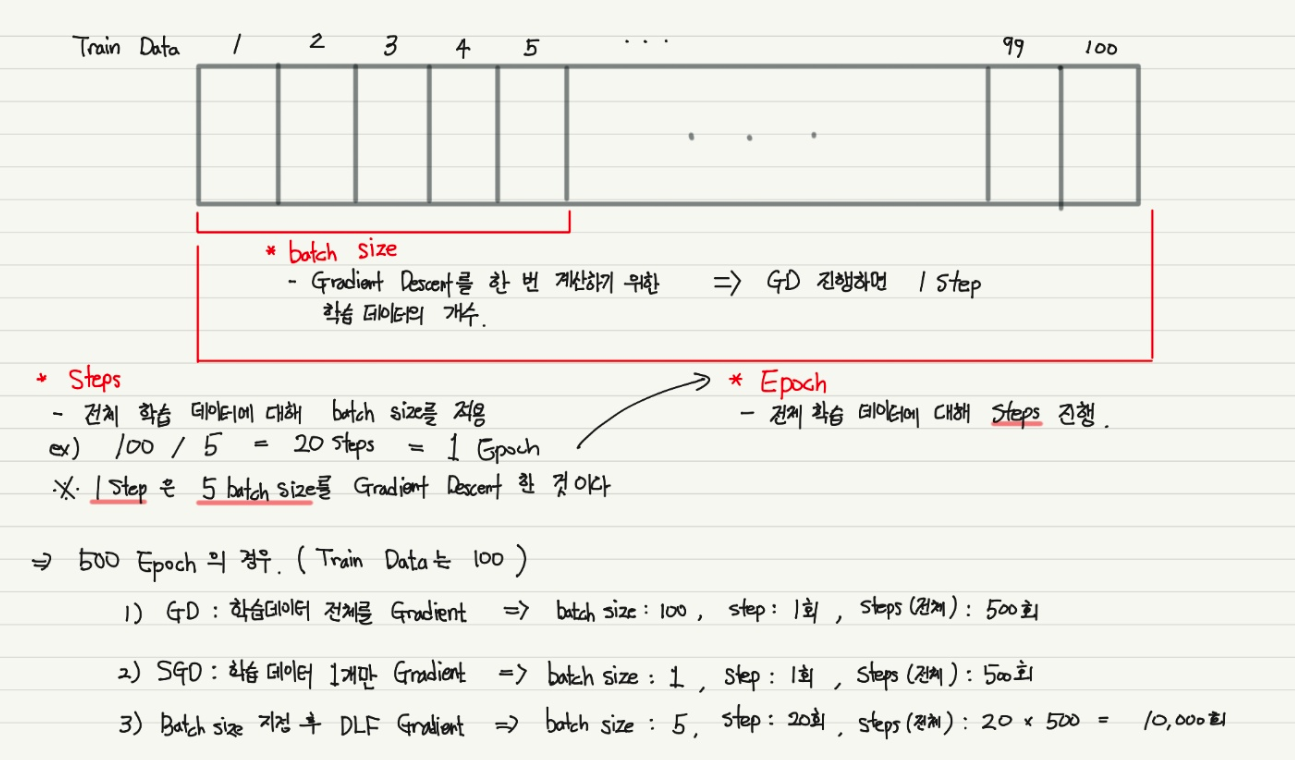 Train Data 1 2 3 4 5 ... 99 100
. . .
* batch size
- Gradient Descent를 한 번 계산하기 위한 => GD 진행하면 1 Step
학습 데이터의 개수.
* Steps
- 전체 학습 데이터에 대해 batch size를 적용
ex) 100 / 5 = 20 steps = 1 Epoch
※ 1 Step 은 5 batch size를 Gradient Descent 한 것이다
* Epoch
- 전체 학습 데이터에 대해 Steps 진행.
=> 500 Epoch 의 경우. ( Train Data는 100 )
1) GD : 학습데이터 전체를 Gradient => batch size : 100 , step : 1회 , Steps (전체) : 500회
2) SGD : 학습 데이터 1개만 Gradient => batch size : 1 , Step : 1회 , Steps (전체) : 500회
3) Batch size 지정 후 DLF Gradient => batch size : 5, Step : 20회 , steps (전체) : 20 × 500 = 10,000회